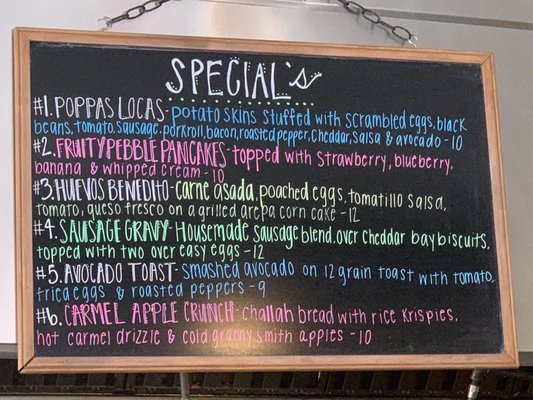 SPECIAL's
#1. POPPAS LOCAS - potato skins stuffed with scrambled eggs, black
beans, tomato, sausage, porkroll, bacon, roasted pepper, cheddar, salsa & avocado - 10
#2. FRUITY PEBBLE PANCAKES - topped with strawberry, blueberry,
banana & whipped cream - 10
#3. HUEVOS BENEDITO - carne asada, poached eggs, tomatillo salsa,
tomato, queso fresco on a grilled arepa corn cake - 12
#4. SAUSAGE GRAVY - Housemade sausage blend, over cheddar bay biscuits,
topped with two over easy eggs - 12
#5. AVOCADO TOAST - smashed avocado on 12 grain toast with tomato,
fried eggs & roasted peppers - 9
#6. CARMEL APPLE CRUNCH - challah bread with rice krispies,
hot carmel drizzle & cold granny smith apples - 10